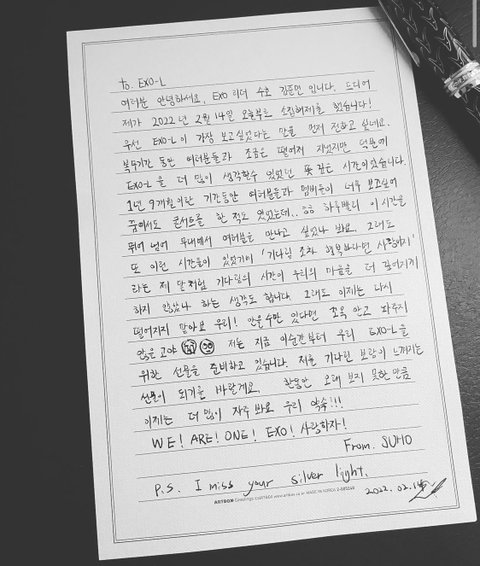 to. EXO-L
여러분 안녕하세요. EXO 리더 수호 김준면 입니다. 드디어
제가 2022년 2월 14일 오늘부로 소집해제를 했습니다!
우선 EXO-L이 가장 보고싶었다는 말을 먼저 전하고 싶네요.
복무기간 동안 여러분들과 조금은 떨어져 지냈지만 덕분에
EXO-L을 더 많이 생각할수 있었던 뜻 깊은 시간이었습니다.
1년 9개월이란 기간동안 여러분들과 멤버들이 너무 보고싶어
꿈에서도 콘서트를 한 적도 있었는데.. 하루빨리 이 시간을
뛰어 넘어 무대에서 여러분을 만나고 싶었나 봐요. 그래도
또 이런 시간들이 있었기에 '기다림 조차 행복하다면 사랑이기'
라는 제 말처럼 기다림의 시간이 우리의 마음을 더 깊어지게
하지 않았나 하는 생각도 합니다. 그래도 이제는 다시
떨어지지 말아보 우리! 안을수만 있다면 꼬옥 안고 놔주지
않을 고야 저는 지금 이순간부터 우리 EXO-L을
위한 선물을 준비하고 있습니다. 저를 기다린 보람이 느껴지는
선물이 되기를 바랄게요. 한동안 오래 보지 못한 만큼
이제는 더 많이 자주 봐요 우리 약속!!!
WE! ARE! ONE! EXO! 사랑하자!
From. SUHO
P.S. I miss your silver light.
2022. 02. 14
ARTBOX